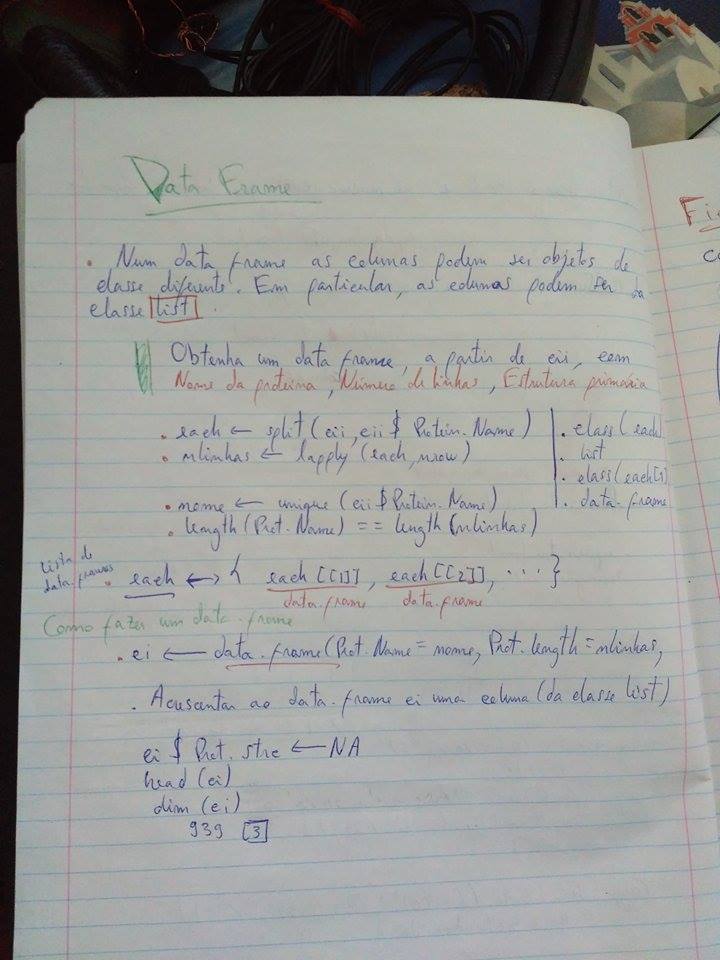 Data Frame
. Num data frame as colunas podem ser objetos de
classe diferente. Em particular, as colunas podem ser da
classe list.
Obtenha um data frame, a partir de eii, com
Nome da proteína, Número de linhas, Estrutura primária
. each ← split (eii, eii $ Protein.Name)
. nlinhas ← lapply (each, nrow)
. class(each)
. list
. class(each[1]
. data.frame
. nome ← unique (eii $ Protein.Name)
. length (Prot.Name) == length (nlinhas)
Lista de
data.frames
. each ↔ { each [[1]], each [[2]], ... }
data.frame data.frame
Como fazer um data.frame
. ei ← data.frame(Prot.Name = nome, Prot.length = nlinhas,
. Acrescentar ao data.frame ei uma coluna (da classe list)
ei $ Prot.stre ← NA
head (ei)
dim (ei)
939 3
Fi
c